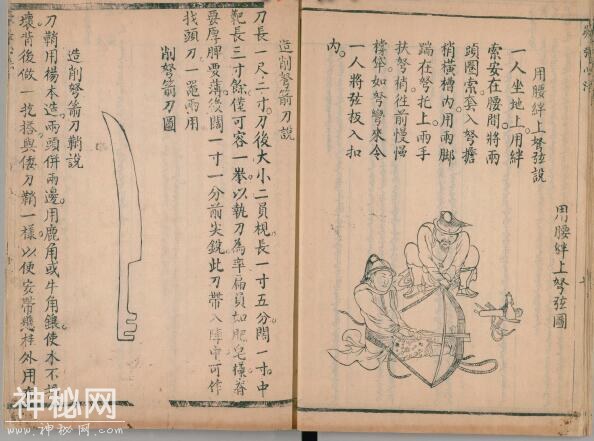 用腰絆上弩弦說
一人坐地上。用絆
索安在腰間將兩
頭圈索套入弩擔
梢橫槽內。用兩脚
踹在弩托上兩手
扶弩梢往前慢慢
撑如弩彎來令
一人將弦扳入扣
內。
用腰絆上弩弦圖
造削弩箭刀說
刀長一尺二寸。刀後大小二員梘長一寸五分闊一寸。中
靶長三寸餘僅可容一拳以執刀為率扁員如肥皂樣脊
要厚脾要薄。後闊一寸一分前尖銳。此刀帶入陣中可作
找頭刀一噐兩用
削弩箭刀圖
造削弩箭刀鞘說
刀鞘用楊木造。兩頭併兩邊。用鹿角或牛角鑲使水不
壞背後做一挖搭與倭刀鞘一樣以便安帶懸挂外用
神秘网
www.神秘网.com